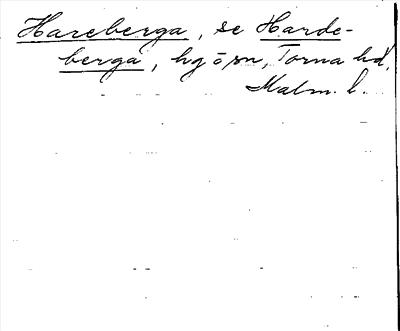 Hareberga, se Harde-
berga, hg o sn, Torna hd,
Malm. l.